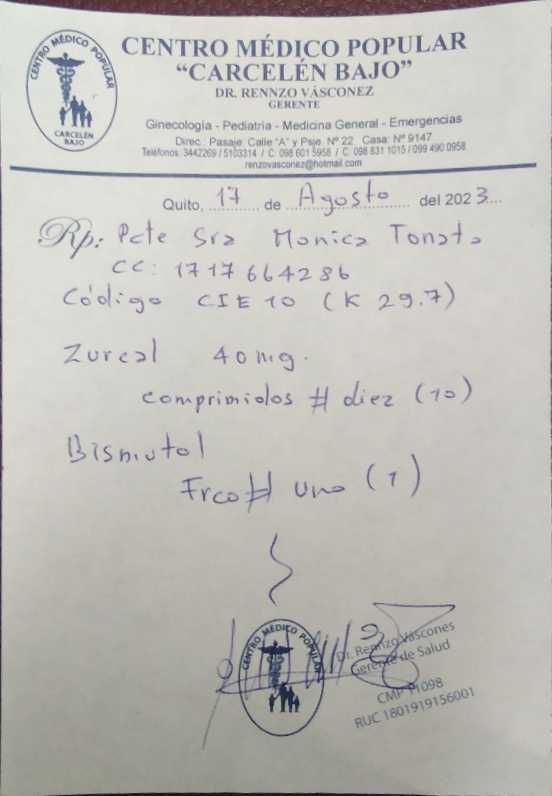 CENTRO MÉDICO POPULAR
CARCELÉN BAJO
CENTRO MÉDICO POPULAR
“CARCELÉN BAJO”
DR. RENNZO VÁSCONEZ
GERENTE
Ginecología - Pediatría - Medicina General - Emergencias
Direc.: Pasaje Calle "A" y Psje. Nº 22 Casa: Nº 9147
Teléfonos: 3442269 / 5103314 / C. 098 601 5958 / C. 098 831 1015 / 099 490 0958
renzovasconez@hotmail.com
Quito, 17 de Agosto del 2023
Rp: Pcte Sra Monica Tonato
CC: 1717664286
Código CIE 10 (K 29.7)
Zurcal 40mg.
comprimidos # diez (10)
Bismutol
Frco # uno (1)
CENTRO MÉDICO POPULAR
Dr. Rennzo Vascones
Gerente de Salud
CMP 11098
RUC 1801919156001